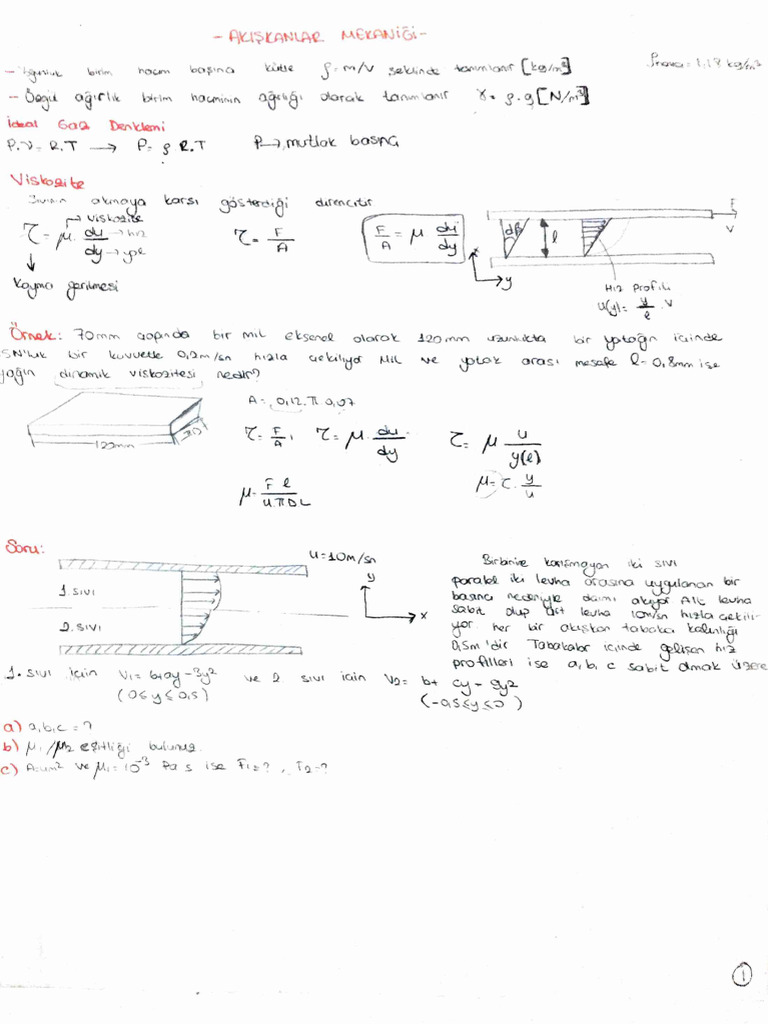 - AKIŞKANLAR MEKANİĞİ -
- Yoğunluk birim hacim başına kütle ρ = m/V şeklinde tanımlanır [kg/m³]
ρhava = 1,18 kg/m³
- Özgül ağırlık birim hacminin ağırlığı olarak tanımlanır γ = ρ.g [N/m³]
İdeal Gaz Denklemi
P.V = R.T → P = ρ R.T P → mutlak basınç
Viskozite
Sıvının akmaya karşı gösterdiği dirençtir
→ viskozite
τ = μ. du/dy → hız → yol
τ = F/A
F/A = μ du/dy
↓
Kayma gerilmesi
dβ l F V
x y
Hız Profili
u(y) = y/l . V
Örnek: 70mm çapında bir mil eksenel olarak 120mm uzunlukta bir yatağın içinde
5N'luk bir kuvvetle 0,2m/sn hızla çekiliyor Mil ve yatak arası mesafe l = 0,8mm ise
yağın dinamik viskozitesi nedir?
A = 0,12.π 0,07
120mm πD
τ = F/A , τ = μ. du/dy
τ = μ u/y(l)
μ = F l/u.πDL
μ = τ . y/u
Soru:
u = 10m/sn
1. SIVI
2. SIVI
y x
Birbirine karışmayan iki sıvı
paralel iki levha arasına uygulanan bir
basınç nedeniyle daimi akıyor Alt levha
sabit olup üst levha 10m/sn hızla çekili-
yor. her bir akışkan tabaka kalınlığı
0,5m'dir Tabakalar içinde gelişen hız
profilleri ise a, b, c sabit olmak üzere
1. SIVI için V1 = b+ay-3y² ve 2. SIVI için V2 = b+ cy - 9y²
(0≤y≤0,5) (-0,5≤y≤0)
a) a,b,c = ?
b) μ1/μ2 eşitliği bulunuz.
c) ve μ1 = 10⁻³ Pa s ise F1 = ? , F2 = ?
1